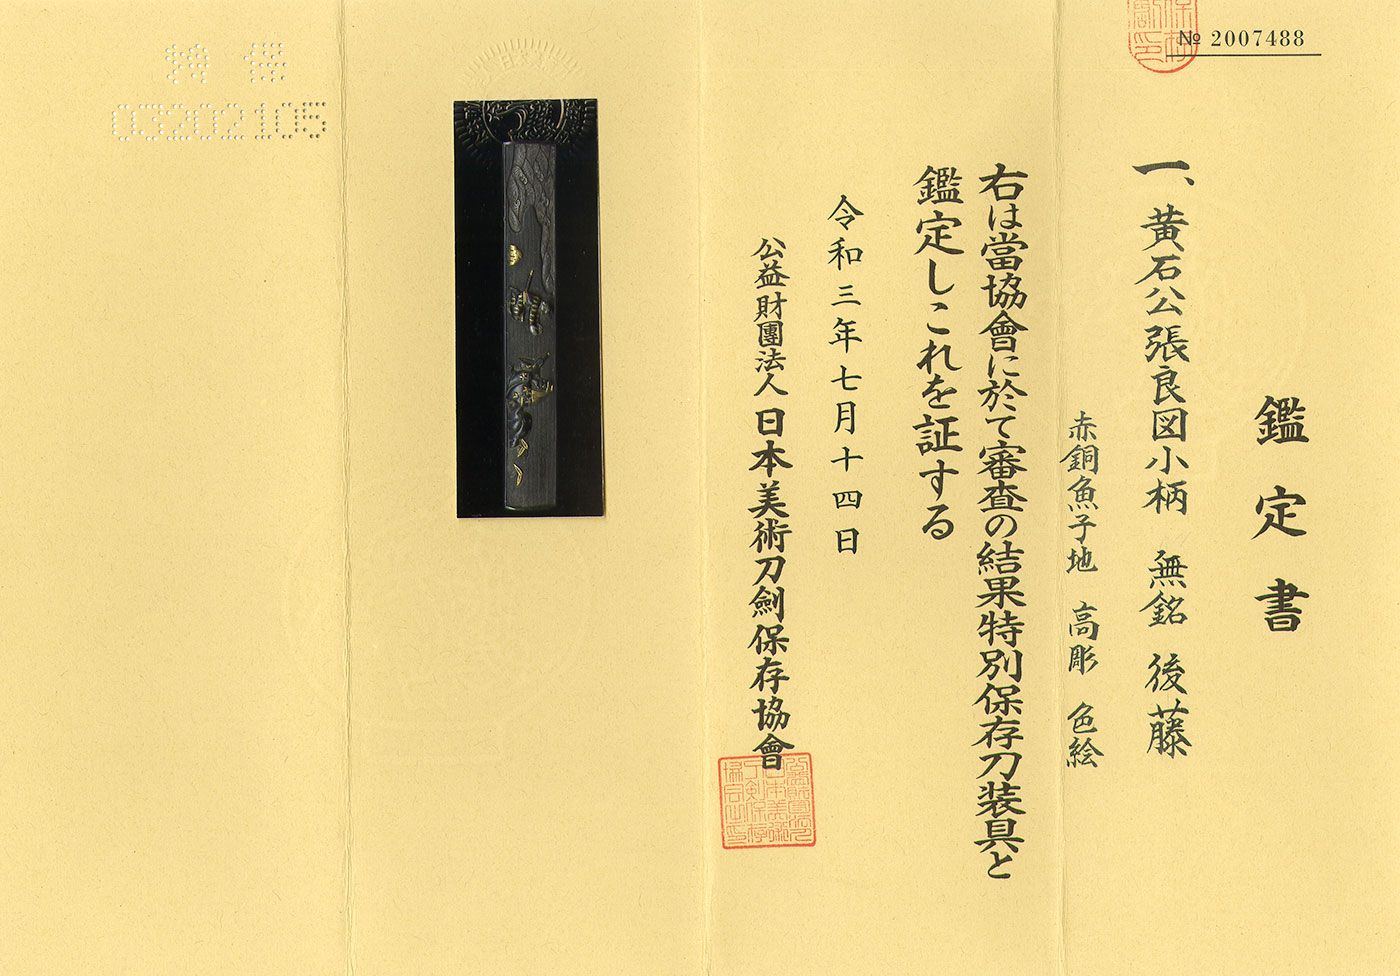 № 2007488
鑑定書
一、黄石公張良図小柄 無銘 後藤
赤銅魚子地 高彫 色絵
右は當協會に於て審査の結果特別保存刀装具と
鑑定しこれを証する
令和三年七月十四日
公益財團法人 日本美術刀劍保存協會
03202105